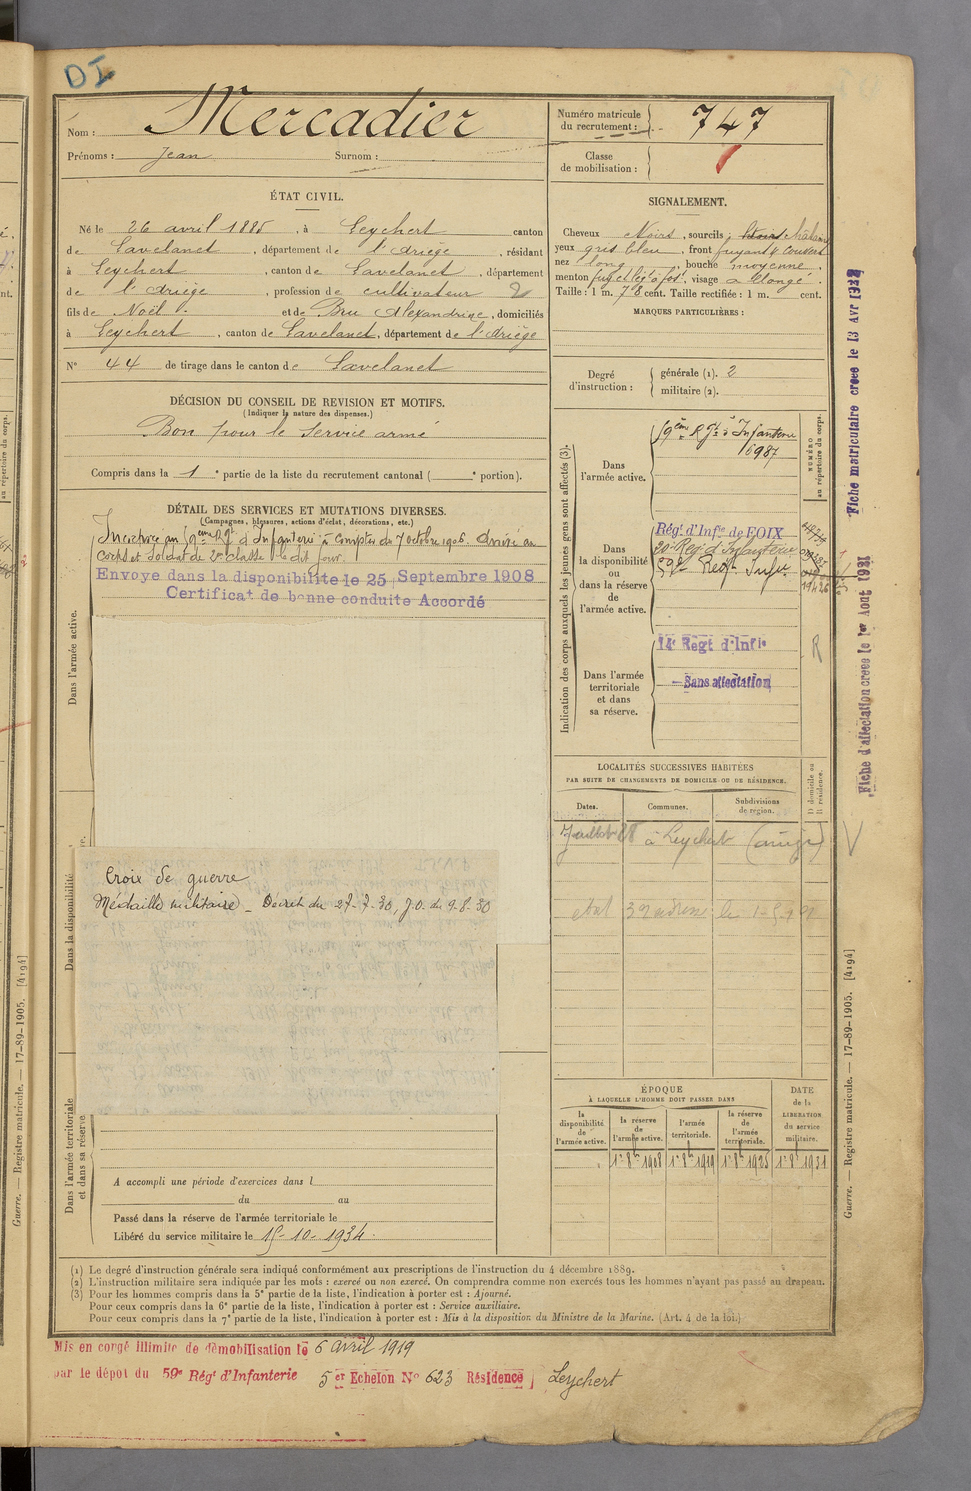 DI
Nom : Mercadier
Prénoms : Jean Surnom :
Numéro matricule du recrutement : 747
Classe de mobilisation :
ÉTAT CIVIL.
Né le 26 avril 1885, à Leychert canton
de Lavelanet, département de l'Ariège, résidant
à Leychert, canton de Lavelanet, département
de l'Ariège, profession de cultivateur 2
fils de Noël et de Bru Alexandrine, domiciliés
à Leychert, canton de Lavelanet, département de l'Ariège
N° 44 de tirage dans le canton de Lavelanet
DÉCISION DU CONSEIL DE REVISION ET MOTIFS.
(Indiquer la nature des dispenses.)
Bon pour le service armé
Compris dans la 1 e partie de la liste du recrutement cantonal ( e portion).
DÉTAIL DES SERVICES ET MUTATIONS DIVERSES.
(Campagnes, blessures, actions d'éclat, décorations, etc.)
Incorporé au 59ème Rgt d'Infanterie à Compter du 7 octobre 1906. Arrivé au
Corps et Soldat de 2e classe le dit jour.
Envoye dans la disponibilite le 25 Septembre 1908
Certificat de bonne conduite Accordé
Dans l'armée active.
Dans la disponibilité
Croix de guerre
Médaille militaire - Décret du 27-7-30, J.O. du 9-8-30
Dans l'armée territoriale
et dans sa réserve.
A accompli une période d'exercices dans l
du au
Passé dans la réserve de l'armée territoriale le
Libéré du service militaire le 15-10-1934.
SIGNALEMENT.
Cheveux Noirs, sourcils : Noirs châtains
yeux gris bleu, front fuyant & couvert
nez long, bouche moyenne,
menton visage allongé.
Taille : 1 m. 78 cent. Taille rectifiée : 1 m. cent.
MARQUES PARTICULIÈRES :
Degré d'instruction : générale (1). 2
militaire (2).
Indication des corps auxquels les jeunes gens sont affectés (3).
NUMÉRO
au répertoire du corps.
Dans l'armée active.
59ème Rgt d'Infanterie
6987
Dans la disponibilité ou dans la réserve de l'armée active.
Régt d'Infie de FOIX
Reg. d'Infanterie
59e Regt Infie
Dans l'armée territoriale et dans sa réserve.
14e Regt d'Infie
Sans affectation
R
LOCALITÉS SUCCESSIVES HABITÉES
PAR SUITE DE CHANGEMENTS DE DOMICILE OU DE RÉSIDENCE.
Dates. Communes. Subdivisions de région. D domicile ou R résidence.
à Leychert (Ariège)
ÉPOQUE
À LAQUELLE L'HOMME DOIT PASSER DANS
la disponibilité de l'armée active. la réserve de l'armée active. l'armée territoriale. la réserve de l'armée territoriale. DATE de la LIBÉRATION du service militaire.
1er 8bre 1908 1er 8bre 1919 1er 8bre 1925 1er 8bre 1931
(1) Le degré d'instruction générale sera indiqué conformément aux prescriptions de l'instruction du 4 décembre 1889.
(2) L'instruction militaire sera indiquée par les mots : exercé ou non exercé. On comprendra comme non exercés tous les hommes n'ayant pas passé au drapeau.
(3) Pour les hommes compris dans la 5e partie de la liste, l'indication à porter est : Ajourné.
Pour ceux compris dans la 6e partie de la liste, l'indication à porter est : Service auxiliaire.
Pour ceux compris dans la 7e partie de la liste, l'indication à porter est : Mis à la disposition du Ministre de la Marine. (Art. 4 de la loi.)
Mis en congé illimité de démobilisation le 6 avril 1919
par le dépot du 59e Régt d'Infanterie 5er Echelon N° 623 Résidence Leychert
Fiche matriculaire creee le 13 Avr
Fiche d'affectation creee le 1er Aout 1921
Guerre. — Registre matricule. — 17-89-1905. [4194]
Guerre. — Registre matricule. — 17-89-1905. [4194]